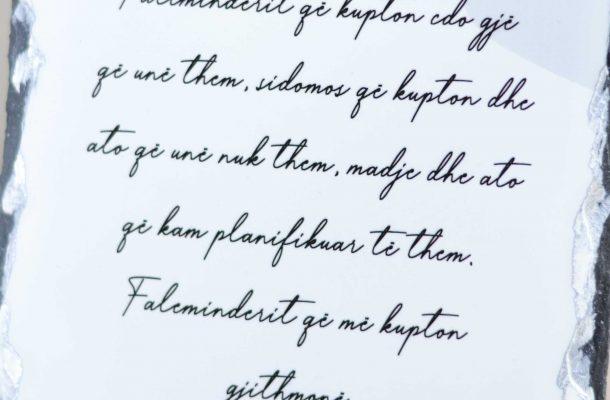 Faleminderit që kupton cdo gjë
që unë them, sidomos që kupton dhe
ato që unë nuk them, madje dhe ato
që kam planifikuar të them.
Faleminderit që më kupton
gjithmonë